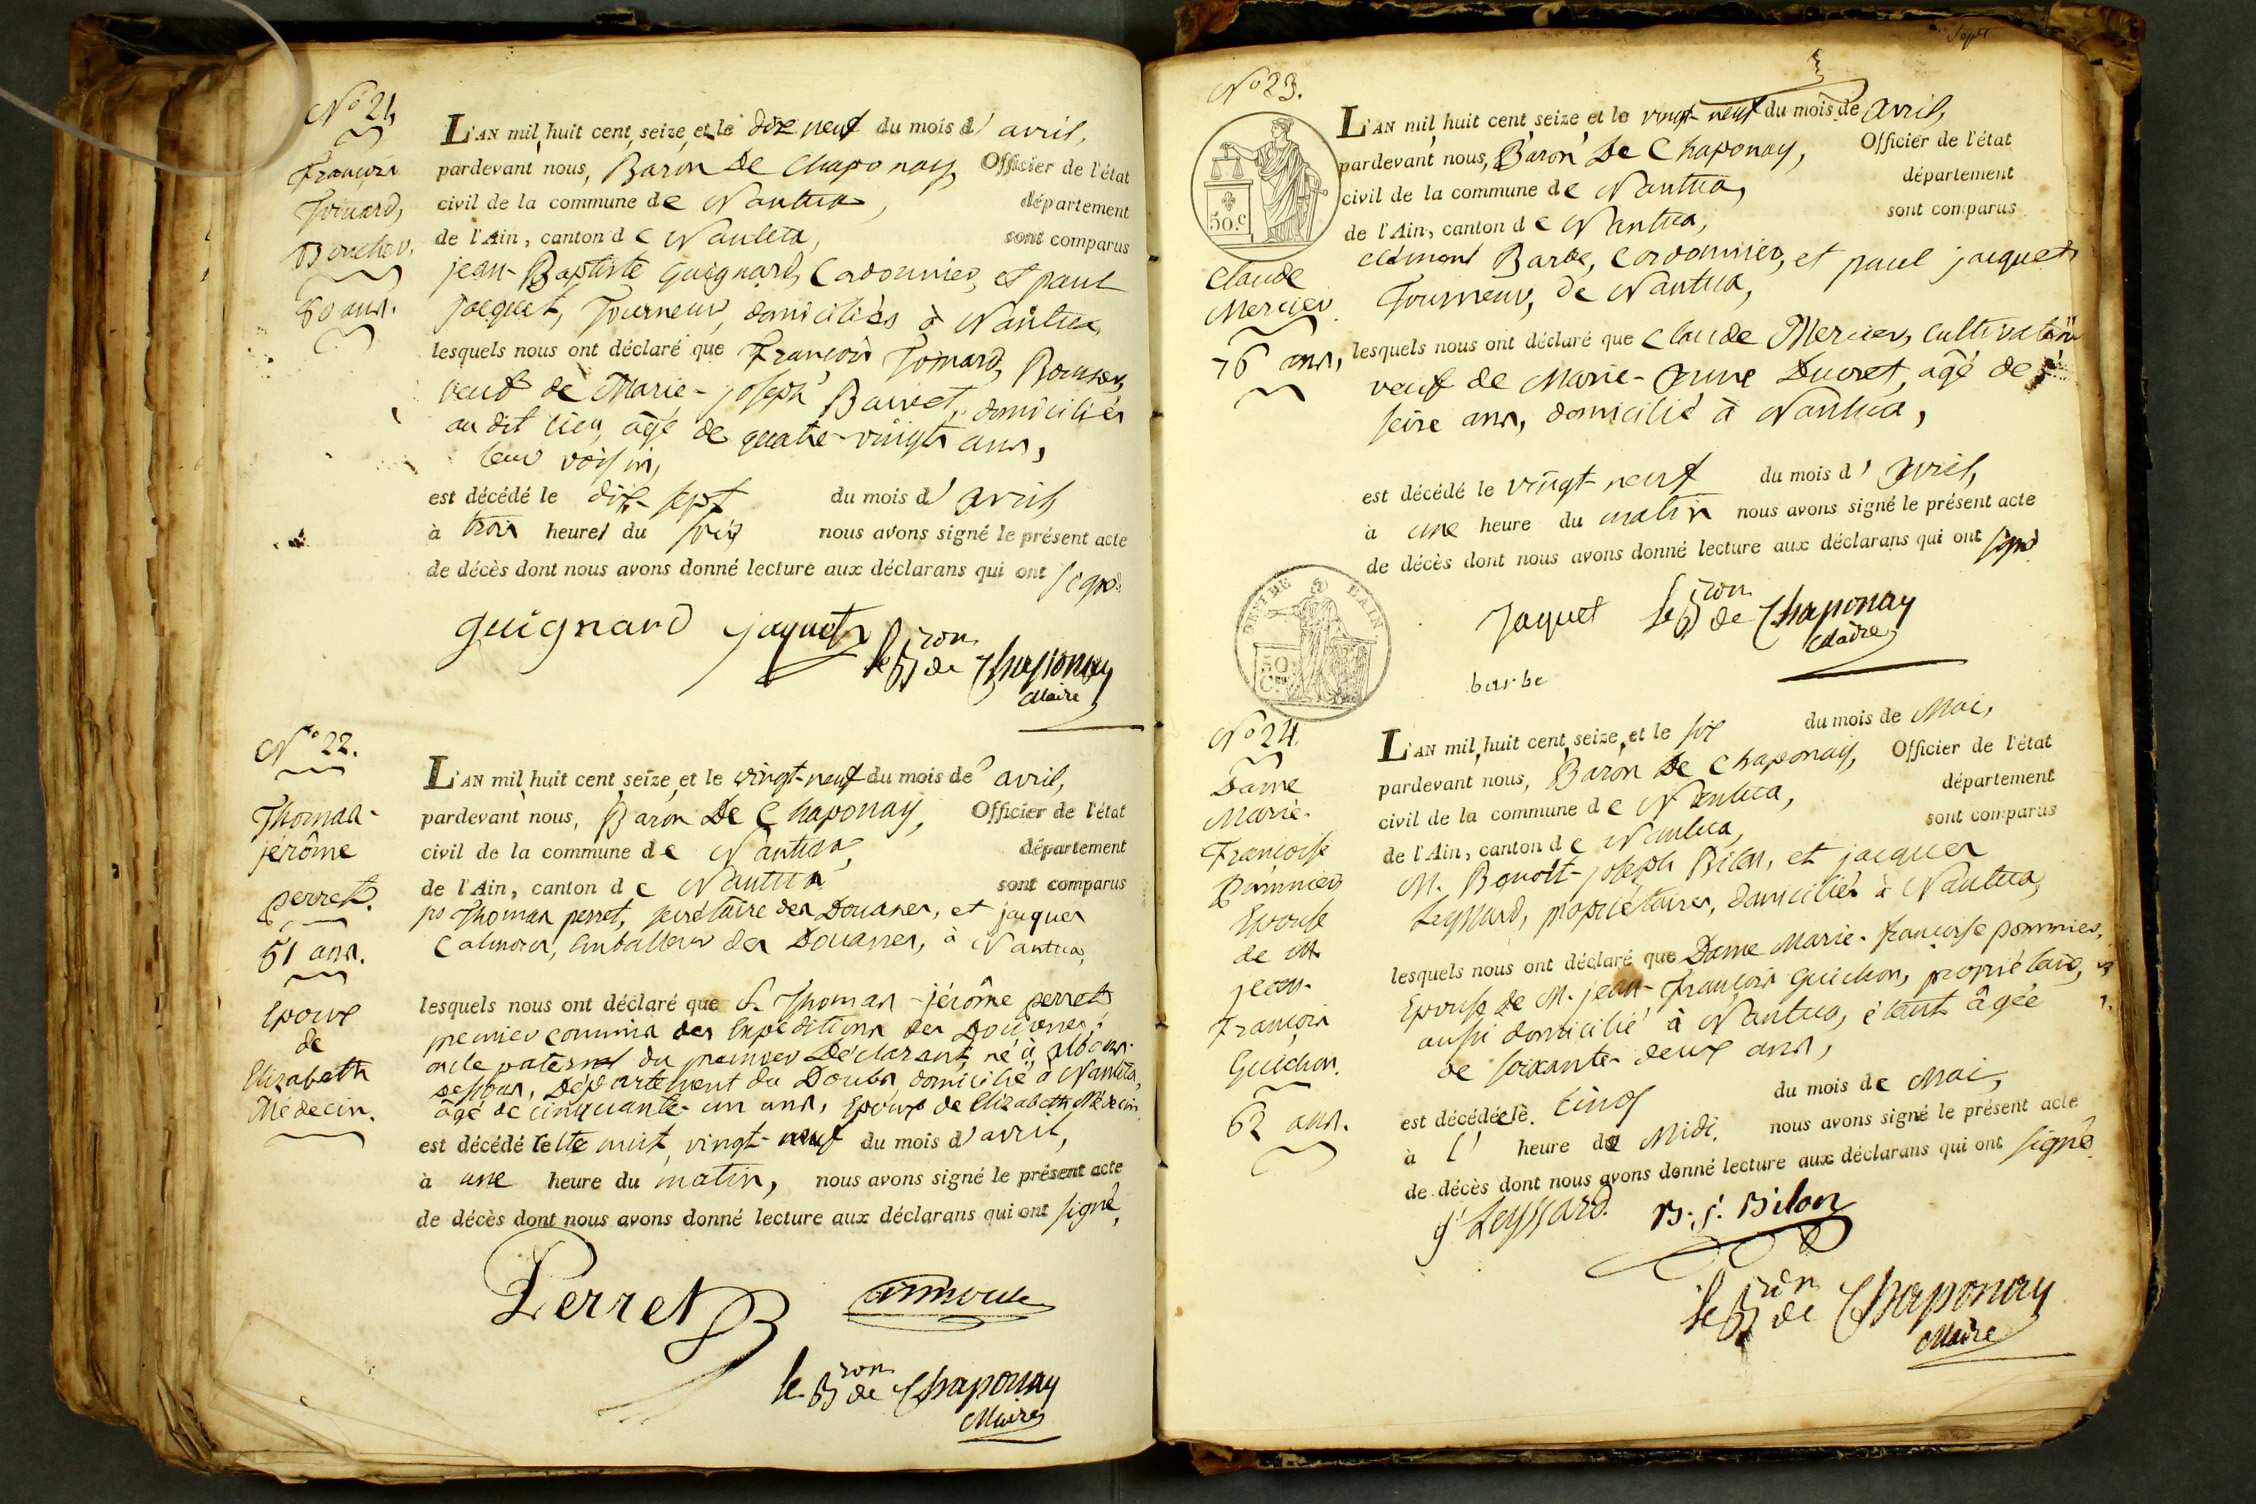 No 21.
François
Boucher.
80 ans.
L'AN mil huit cent seize et le dix neuf du mois d' avril,
pardevant nous, Baron De Chaponay Officier de l'état
civil de la commune de Nantua, département
de l'Ain, canton de Nantua, sont comparus
jean-Baptiste Guignard, Cordonnier, et paul
jacquet, Tourneur, domiciliés à Nantua,
lesquels nous ont déclaré que François
veuf de Marie-joseph domicilié
au dit lieu, âgé de quatre-vingts ans,
leur voisin,
est décédé le dix-sept du mois d' avril
à trois heures du soir nous avons signé le présent acte
de décès dont nous avons donné lecture aux déclarans qui ont signé.
Guignard jaquet le Bron de Chaponay
Maire
No 22.
Thomas-
jérôme
perret.
51 ans.
Epoux
de
Elizabeth
Médecin.
L'AN mil huit cent seize et le vingt-neuf du mois de avril,
pardevant nous, Baron De Chaponay, Officier de l'état
civil de la commune de Nantua, département
de l'Ain, canton de Nantua sont comparus
Thomas perret, secrétaire des Douanes, et jacques
emballeur des Douanes, à Nantua,
lesquels nous ont déclaré que S. Thomas-jérôme perret
premier commis des Expéditions des Douanes,
oncle paternel du premier Déclarant, né à
dessous, Département du Doubs, domicilié à Nantua,
âgé de cinquante-un ans, Epoux de Elizabeth Médecin
est décédé cette nuit, vingt-neuf du mois d' avril,
à une heure du matin, nous avons signé le présent acte
de décès dont nous avons donné lecture aux déclarans qui ont signé.
Perret
le Bron de Chaponay
Maire
No 23.
50.c
Claude
Mercier
76 ans,
L'AN mil huit cent seize et le vingt-neuf du mois de avril,
pardevant nous, Baron De Chaponay, Officier de l'état
civil de la commune de Nantua, département
de l'Ain, canton de Nantua, sont comparus
clément Barbe, Cordonnier, et paul jacquet
Tourneur, de Nantua,
lesquels nous ont déclaré que Claude Mercier, cultivateur
veuf de Marie- Ducret, âgé de
seize ans, domicilié à Nantua,
est décédé le vingt-neuf du mois d' avril,
à une heure du matin nous avons signé le présent acte
de décès dont nous avons donné lecture aux déclarans qui ont signé
DEPT DE L'AIN
50 Cen
Jaquet le Bron de Chaponay
Maire
barbe
No 24.
Dame
Marie-
Françoise
Pommier
Epouse
de M.
jean-
François
Guichon.
62 ans.
L'AN mil huit cent seize et le six du mois de Mai,
pardevant nous, Baron De Chaponay, Officier de l'état
civil de la commune de Nantua, département
de l'Ain, canton de Nantua, sont comparus
M. Benoît-joseph Bilon, et jacques
Leyssard, propriétaires, domiciliés à Nantua,
lesquels nous ont déclaré que Dame Marie-françoise pommier,
Epouse de M. jean-François Guichon, propriétaire,
aussi domicilié à Nantua, étant âgée
de soixante-deux ans,
est décédée le cinq du mois de Mai,
à l' heure de Midi. nous avons signé le présent acte
de décès dont nous avons donné lecture aux déclarans qui ont signé.
J Leyssard. B. j. Bilon
le Bron de Chaponay
Maire